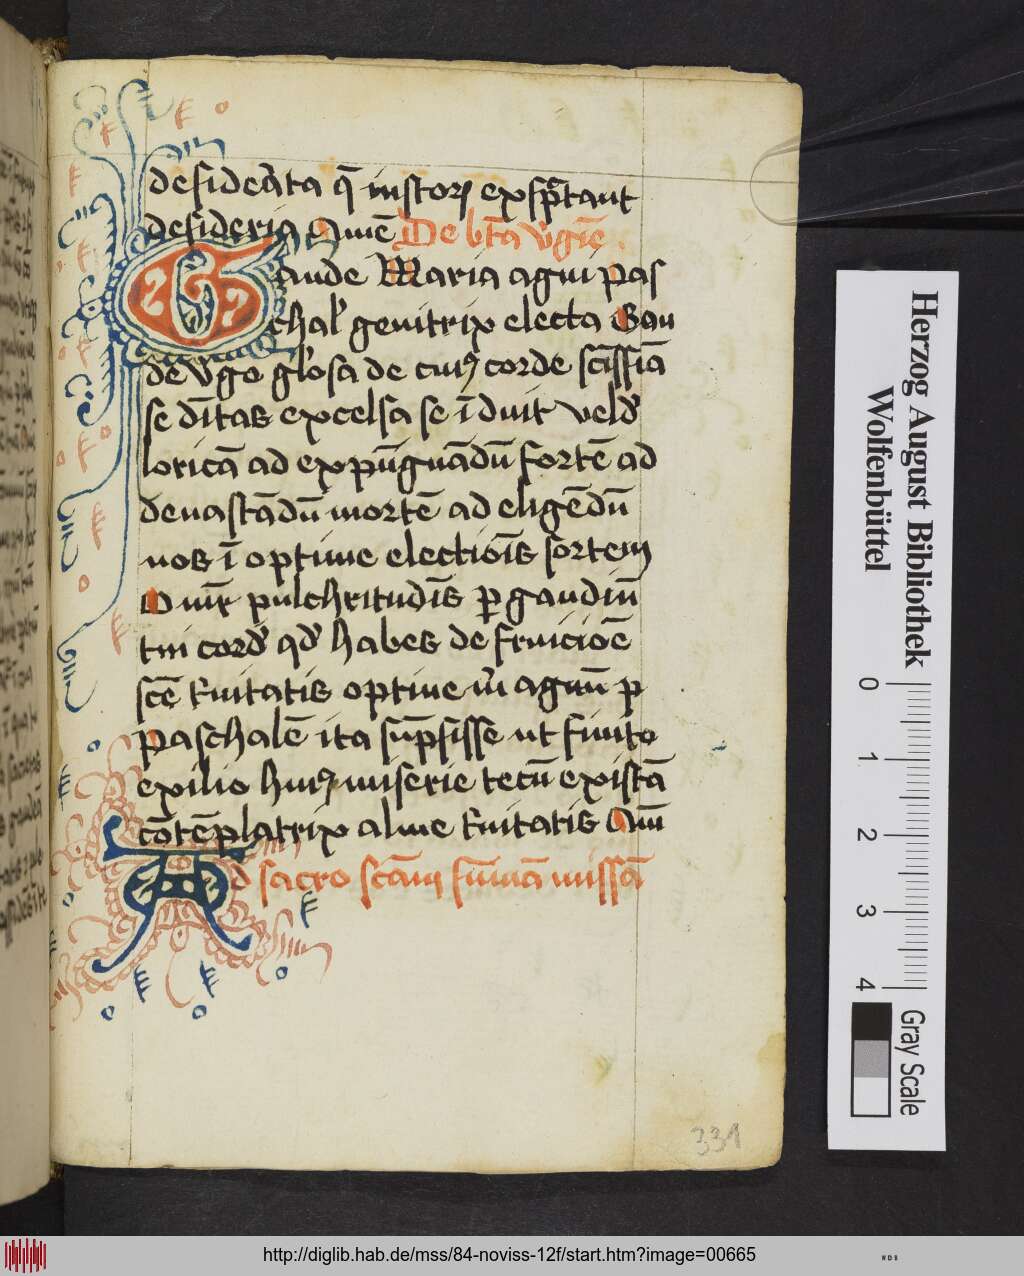 desid̾ata q̄ iustoꝝ exspectant
desideria Amē De bt̄a v̾gīe.
Gaude Maria agni pas
chal̾ genitrix electa Gau
de v̾go gl̾osa de cuiꝰ corde sc̄issīa
se dītas excelsa se īduit veld̾
loricā ad expūgnādū fortē ad
deuastādū mortē ad eligēdū
nos ī optime electiōīs sortem
pulchritudīs ꝑ gaudiū
tui cord̾ qd̾ habes de fruiciōē
scē t̾nitatis optine agnū p
paschalē ita sūpsisse ut finito
exilio huiꝰ miserie tecū existā
cōtēplatrix alme t̾nitatis Amē
Ad sacro scām sūmā missā
331
Herzog August Bibliothek
Wolfenbüttel
0 1 2 3 4
Gray Scale
http://diglib.hab.de/mss/84-noviss-12f/start.htm?image=00665